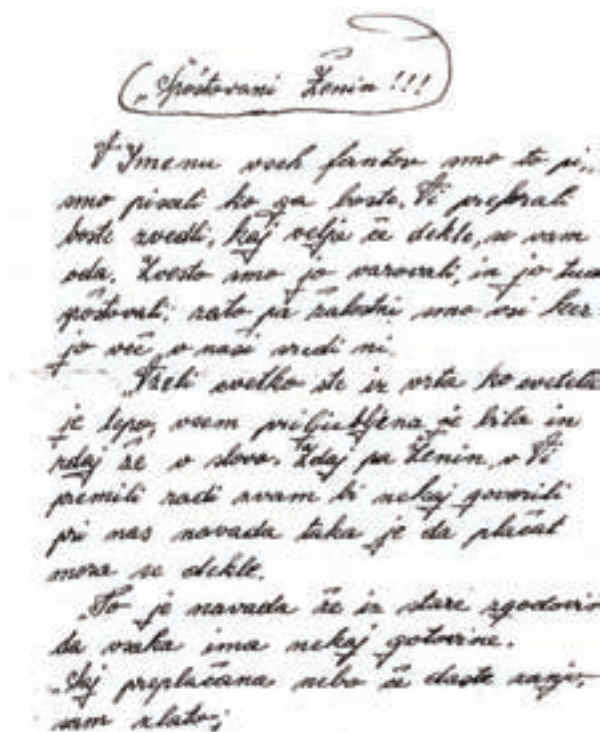 „Spoštovani Ženin!!!
V Ymenu vseh fantov smo to pi..
smo pisali ko ga boste. Vi prebrali
boste zvedli, kaj velja če dekle, se vam
oda. Zvesto smo jo varovali, in jo tud
spoštovali; zato pa žalostni smo vsi ker
jo več v nasi sredi ni.
„Vzeli cvetko ste iz vrta ko cvetela
je lepo, vsem priljubljena je bila in
zdaj že v slovo. Zdaj pa Ženin, v Vi
premili radi svam bi nekaj govorili
pri nas navada taka je da plačat
mora se dekle.
„To je navada že iz stare zgodovin
da vsaka ima nekaj gotovine.
„Naj preplačana nebo če daste zanjo,
sam zlato;